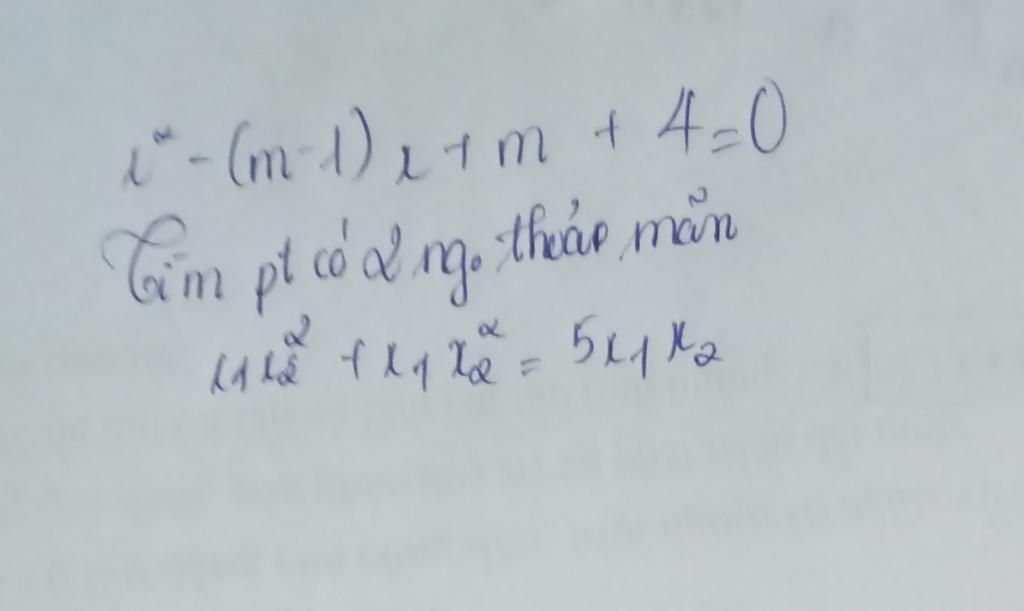 x² - (m-1) x + m + 4 = 0
Tìm pt có 2 ng. thỏa mãn
x₁x₂² + x₁x₂² = 5x₁x₂